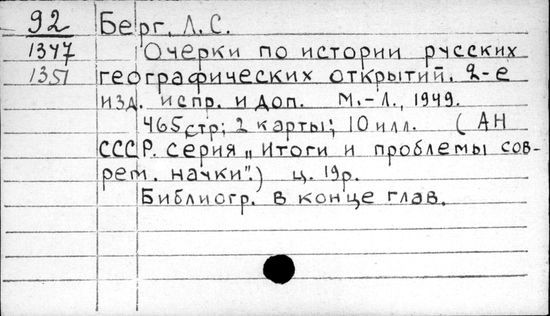 92 Берг, Л.С.
1347 Очерки по истории русских
1351 географических открытий. 2-е
изд. испр. и доп. М.-Л., 1949.
465 стр; 2 карты; 10 илл. (АН
СССР. Серия „Итоги и проблемы сов-
рем. науки".) ц. 19р.
Библиогр. в конце глав.